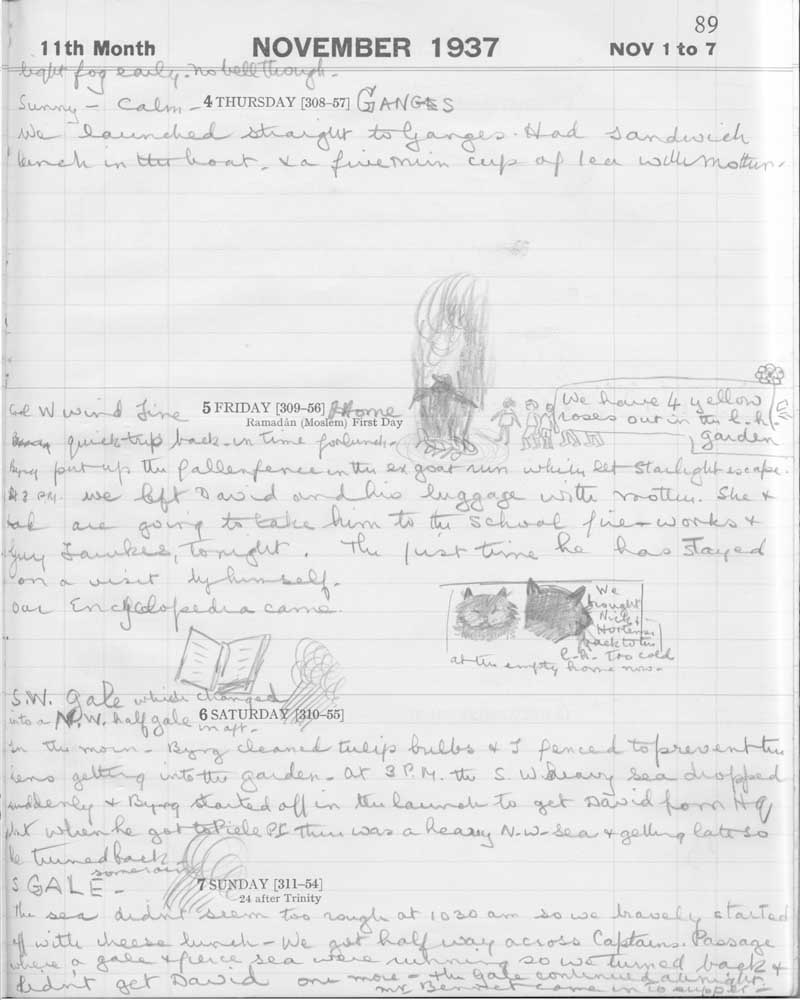 89
11th Month NOVEMBER 1937 NOV 1 to 7
light fog early. No bell though.
Sunny - Calm - 4 THURSDAY [308-57] GANGES
We launched straight to Ganges. Had sandwich
lunch in the boat. & a five min cup of tea with Mother.
W wind Fine 5 FRIDAY [309-56] Home
Ramadân (Moslem) First Day
We have 4 yellow
roses out in the l.h.
garden
quick trip back in time for lunch.
Byrg put up the fallen fence in the ex goat run which let Starlight escape.
At 3 P.M. we left David and his luggage with Mother. She &
are going to take him to the School fire-works &
Guy Fawkes, tonight. The first time he has stayed
on a visit by himself.
Our Encyclopedia came.
We
brought
Nick &
Hortense
back to the
l.h. Too cold
at the empty home now.
S.W. gale which changed
into a N.W. half gale 6 SATURDAY [310-55]
in aft.
In the morn - Byrg cleaned tulip bulbs & I fenced to prevent the
hens getting into the garden. At 3 P.M. the S.W. heavy sea dropped
suddenly & Byrg started off in the launch to get David from
but when he got to Pt there was a heavy N-W-Sea & getting late so
he turned back.
some rain
S GALE - 7 SUNDAY [311-54]
24 after Trinity
The sea didn't seem too rough at 10 30 am so we bravely started
off with cheese lunch - We got half way across Captains Passage
where a gale & fierce sea were running so we turned back &
didn't get David once more - the Gale continued at night
Mr Bennet came in to supper -